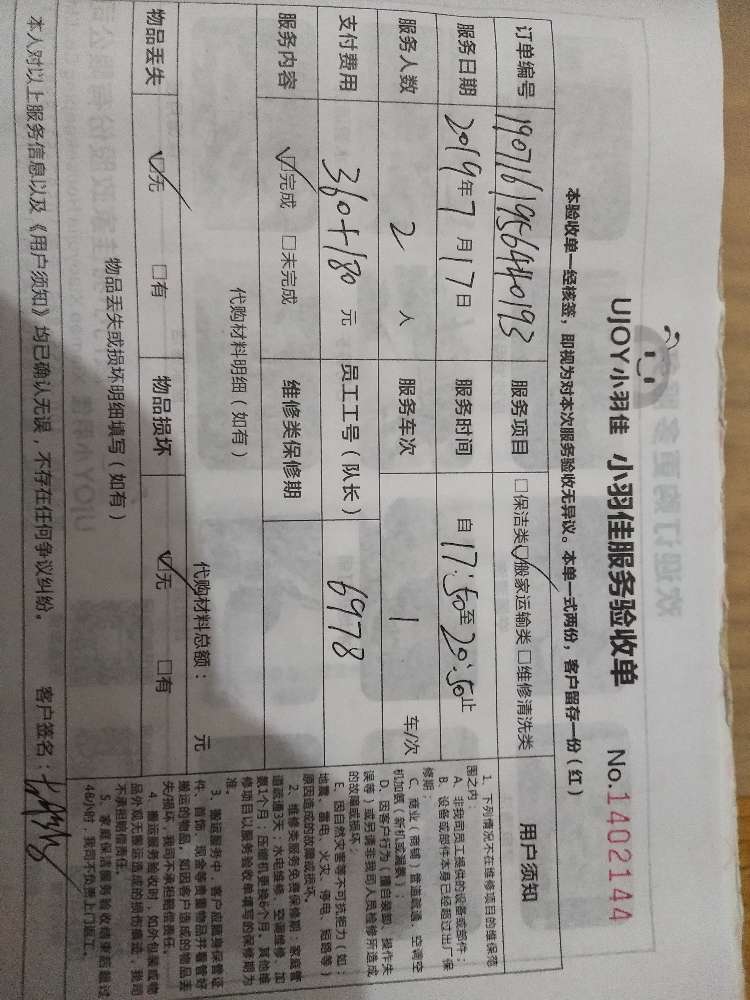 UJOY小羽佳 小羽佳服务验收单 No.1402144
本验收单一经核签，即视为对本次服务验收无异议。本单一式两份，客户留存一份（红）
订单编号 1907161956440193 服务项目 □保洁类☑搬家运输类□维修清洗类
服务日期 2019年7月17日 服务时间 自17:50至20:50止
服务人数 2 人 服务车次 1 车/次
支付费用 360+180 元 员工工号（队长） 6978
服务内容 ☑完成 □未完成 维修类保修期
代购材料明细（如有） 代购材料总额： 元
物品丢失 ☑无 □有 物品损坏 ☑无 □有
物品丢失或损坏明细填写（如有）
本人对以上服务信息以及《用户须知》均已确认无误，不存在任何争议纠纷。 客户签名：
用户须知
1、下列情况不在维修项目的维保范
围之内：
A、非我司员工提供的设备或部件；
B、设备或部件本身已经超过出厂保
修期；
C、商业（商铺）管道疏通、空调空
机加氨（新机或漏氨）；
D、因客户行为（擅自装卸、操作失
误等）或另请非我司人员检修所造成
的故障或损坏；
E、因自然灾害等不可抗拒力（如：
地震、雷电、火灾、停电、短路等）
原因造成的故障或损坏。
2、维修类服务免费保修期：家庭管
道疏通3天；水电维修、空调维修、加
氨1个月；压缩机更换6个月。其他维
修项目以服务验收单填写的保修期为
准。
3、搬运服务中，客户应随身保管证
件、首饰、现金等贵重物品并看管好
搬运的物品，如因客户造成的物品丢
失/损坏，我司不承担赔偿责任。
4、搬运服务验收时，如外包装或物
品外观无搬运造成的损伤痕迹，我司
不承担赔偿责任。
5、家庭保洁服务验收结束后超过
48小时，我司不负责上门返工。